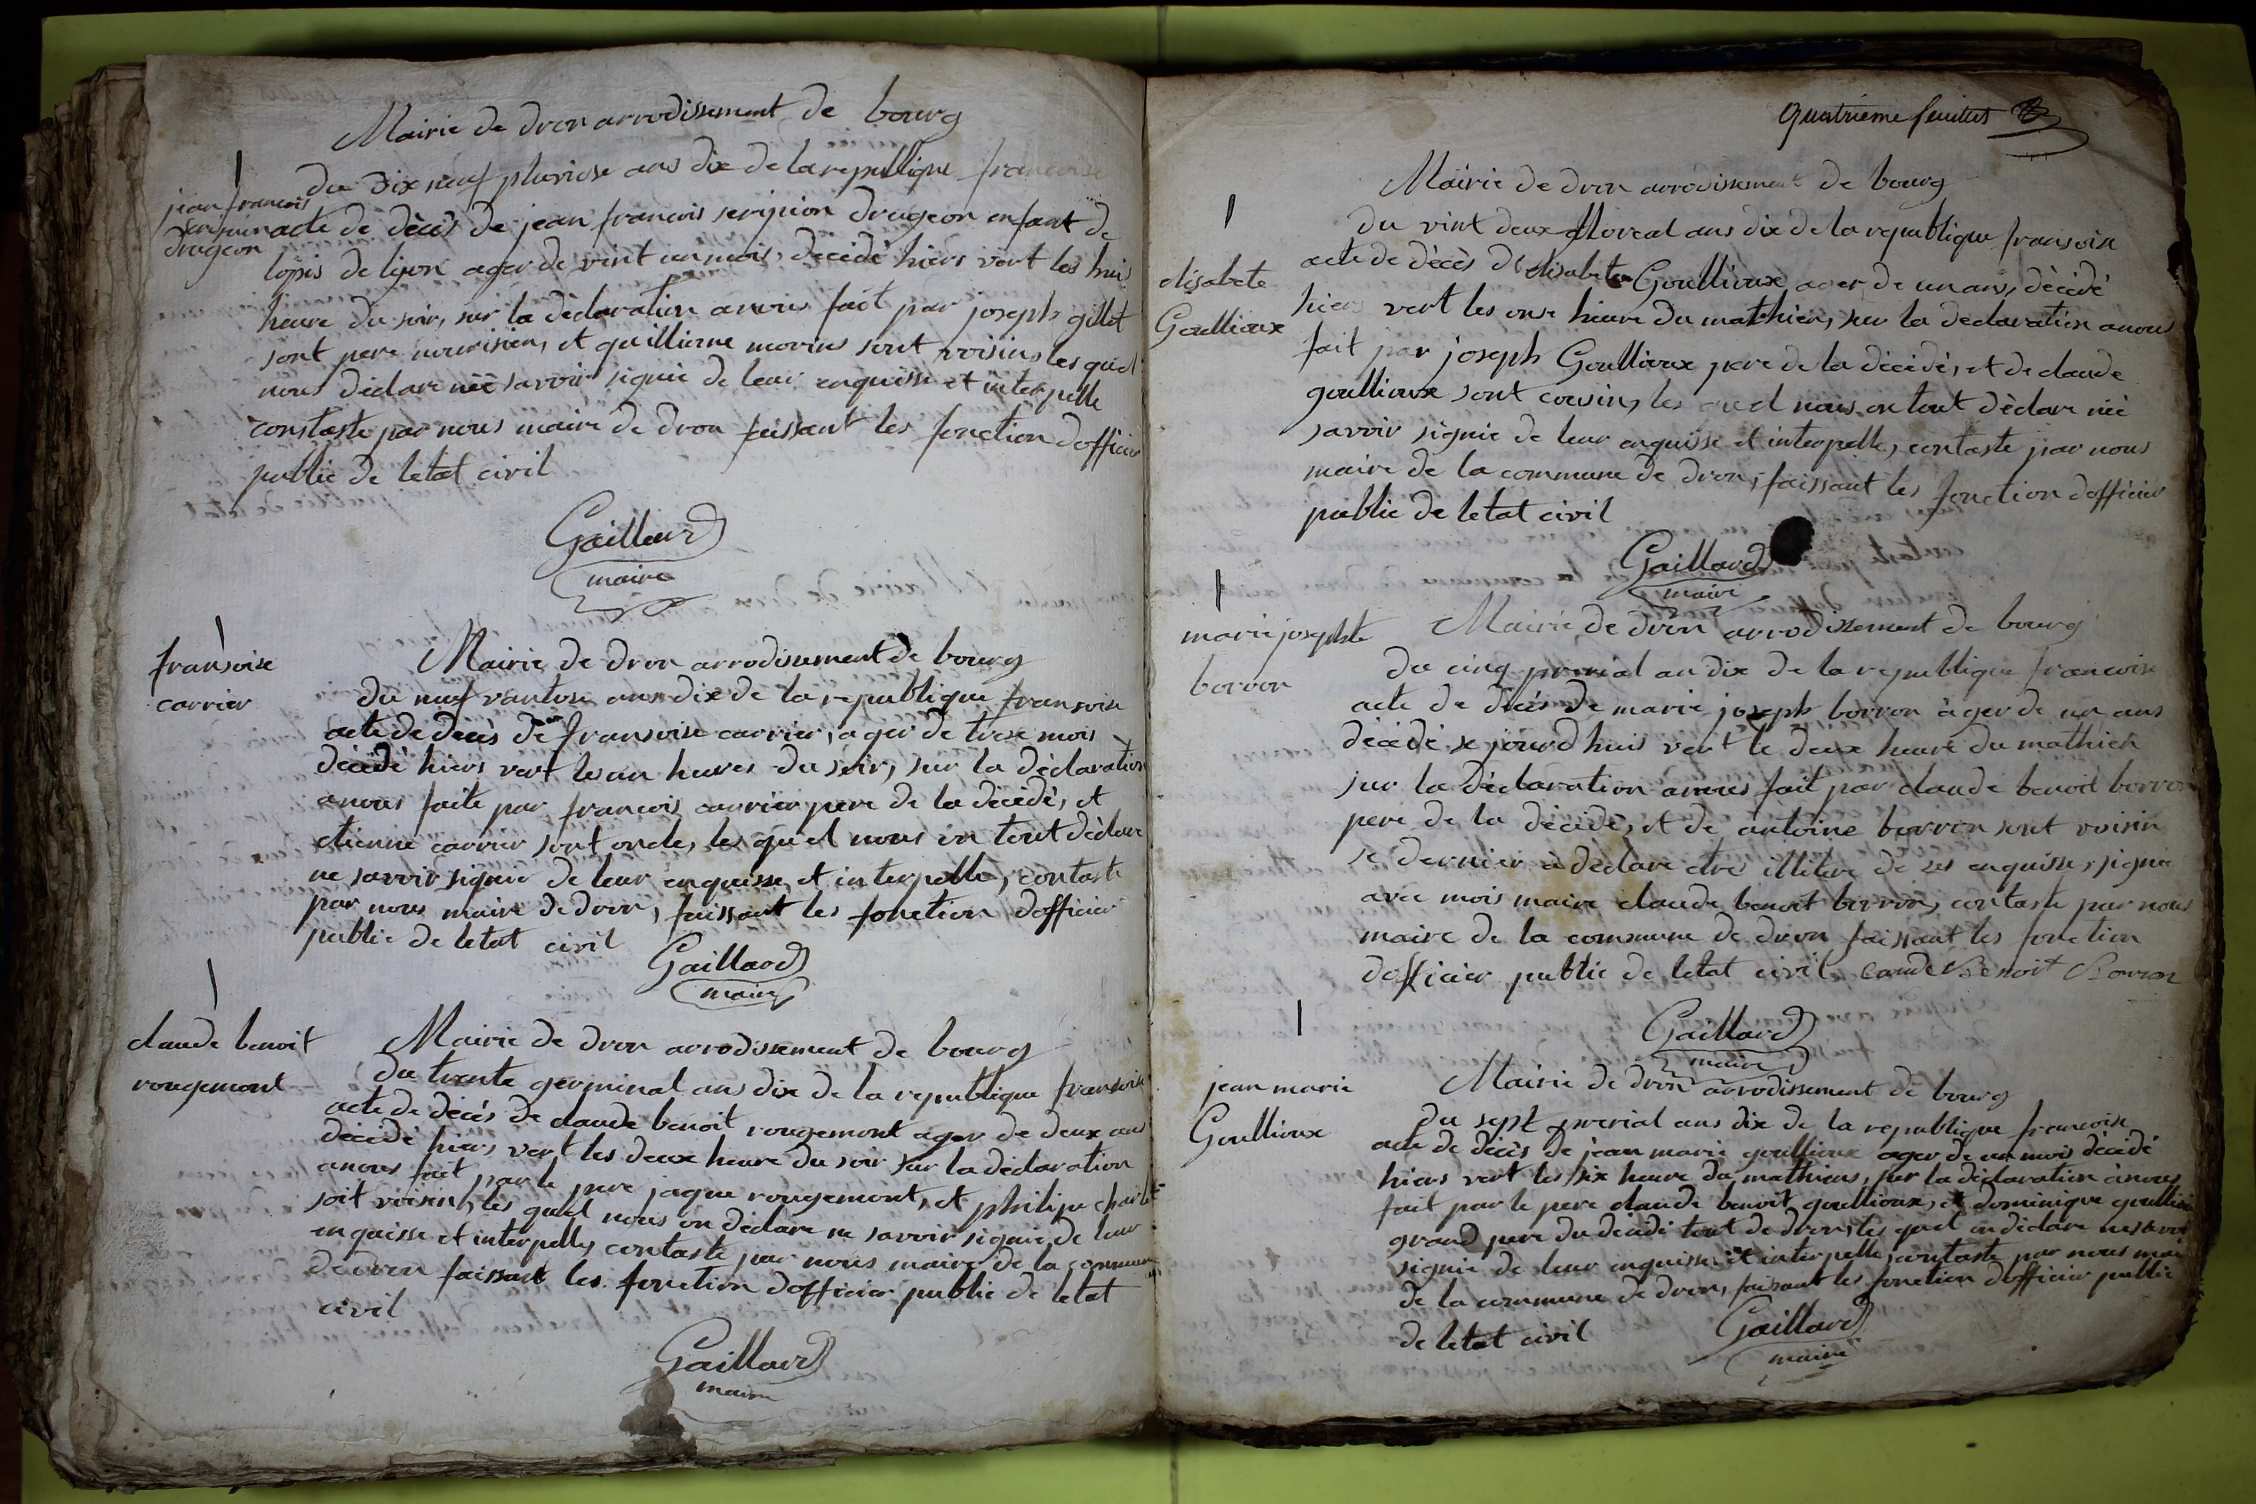 Mairie de dron arrodissement de bourg
jean francois
scripion
drugeon
du dix neuf pluviose ans dix de la republique francoise
acte de dècès de jean francois scripion drugeon enfant de
lopis de lyon ager de vint un mois, decédé hiers vert les huis
heure du soir, sur la dèclaration anous fait par joseph gillet
sont pere nourisien, et quillieme morins sont voisins les quel
nous déclare nèè savoir signie de leur enquisse et interpelle
constaste par nous maire de dron faissant les fonction dofficier
public de letat civil
Gaillard
maire
fransoise
carrier
Mairie de dron arrodissement de bourg
du neuf vantose ans dix de la republique fransoise
acte de decès de fransoise carrier, ager de trese mois
décédé hiers vert les un heures du soir, sur la dèclaration
anous faite par francois carrier pere de la décédé, et
etienne carrier sont oncle, les quel nous on tout dèclare
ne savoir signie de leur enquisse et interpelle, contaste
par nous maire de dron, faissant les fonction dofficier
public de letat civil
Gaillard
maire
claude benoit
rougemont
Mairie de dron arrodissement de bourg
du trente germinal ans dix de la republique fransoise
acte de décès de claude benoit rougemont ager de deux ans
décédé hiers vert les deux heure du soir sur la déclaration
anous fait par le pere jaque rougemont, et philipe
soit voisin, les quel nous on déclare ne savoir signie de leur
enquisse et interpelle, contaste par nous maire de la commune
de dron faissant les fonction dofficier public de letat
civil
Gaillard
maire
quatrieme feuillet
Mairie de dron arrodissement de bourg
elisabete
Goullioux
du vint deux floreal ans dix de la republique fransoise
acte de dècès de elisabete Goullioux ager de un ans, dècédé
hiers vert les onse heure du mathien, sur la declaration anous
fait par joseph Goullioux pere de la dècédé, et de claude
goullioux sont cousin, les quel nous on tout dèclare nèè
savoir signie de leur enquisse et interpelle, contaste par nous
maire de la commune de dron, faissant les fonction dofficier
public de letat civil
Gaillard
maire
marie josephte
borron
Mairie de dron arrodissement de bourg
du cinq prerial an dix de la republique francoise
acte de dècés de marie joseph borron àger de un ans
décédé se jourdhuis vert le deux heure du mathien
sur la Déclaration anous fait par claude benoit borron
pere de la dècédé, et de antoine borron sont voisin
se dernier à déclare etre illitere de ses enquisse, signie
avec mois maire claude benoit borron, contaste par nous
maire de la commune de dron faissant les fonction
dofficier public de letat civil Caude Benoit Borron
Gaillard
maire
jean marie
Goullioux
Mairie de dron arrodissement de bourg
du sept prerial ans dix de la republique francoise
acte de décès de jean marie goullioux ager de un mois dècédé
hiers vert les six heure du mathiens, sur la déclaration à nous
fait par le pere claude benoit goullioux, et dominique goullioux
grand pere du decedé tout de dron, les quel on déclare
signie de leur enquisse et interpelle, contaste par nous maire
de la commune de dron, faissant les fonction dofficier public
de letat civil
Gaillard
maire